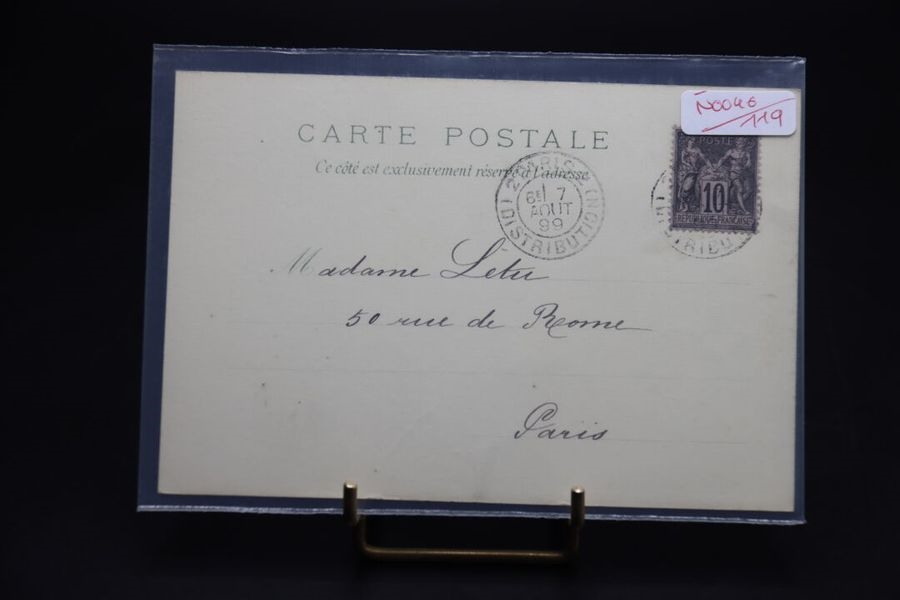 N0046
119
CARTE POSTALE
Ce côté est exclusivement réservé à l'adresse
POSTE
10
REPUBLIQUE FRANÇAISE
PARIS
7
AOUT
99
DISTRIBUTION
TRIBU
Madame Letu
50 rue de Rome
Paris